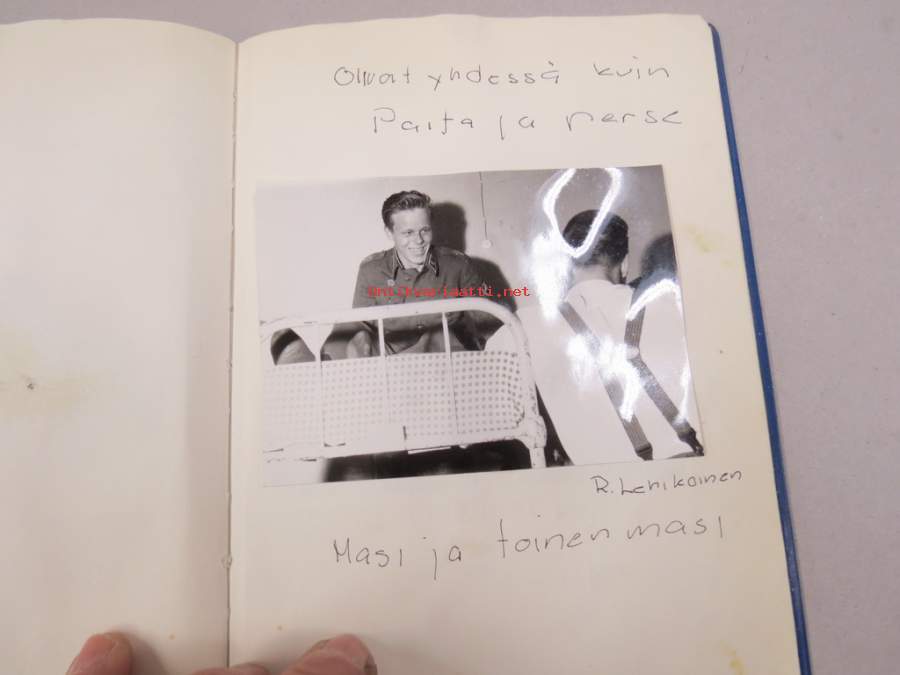 Olivat yhdessä kuin
Paita ja perse
antikvariaatti.net
R. Lehikoinen
Masi ja toinen masi